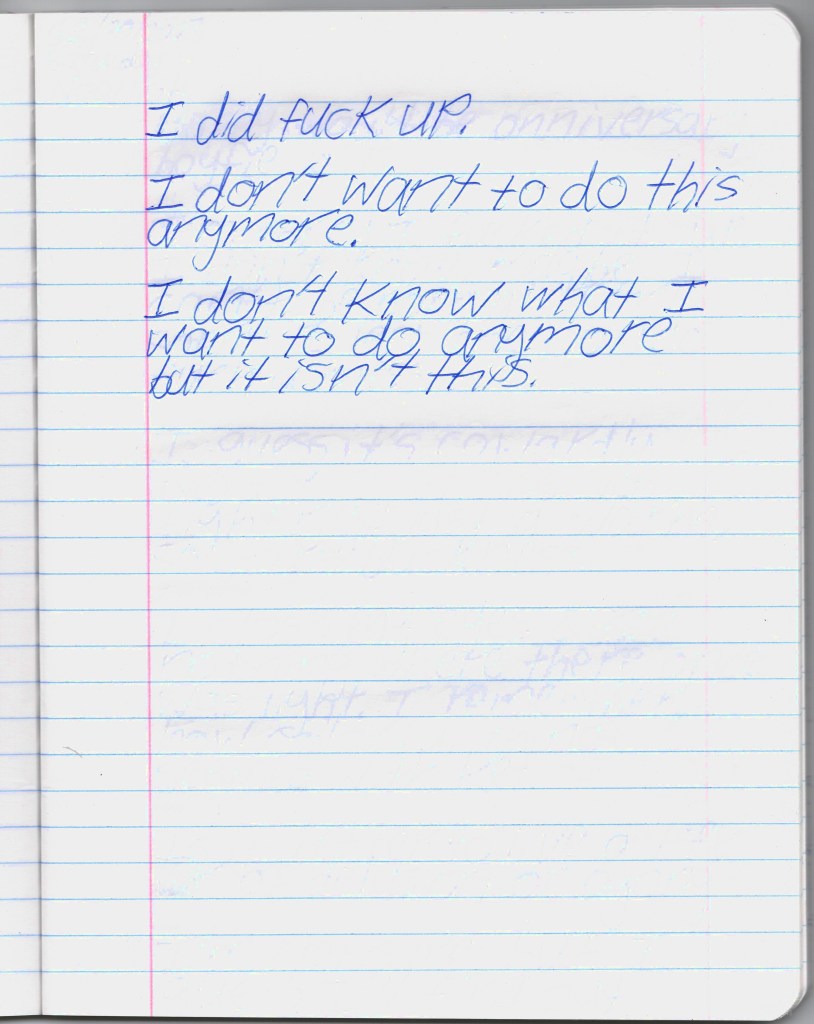 I did fuck up.
I don't want to do this
anymore.
I don't know what I
want to do anymore
but it isn't this.